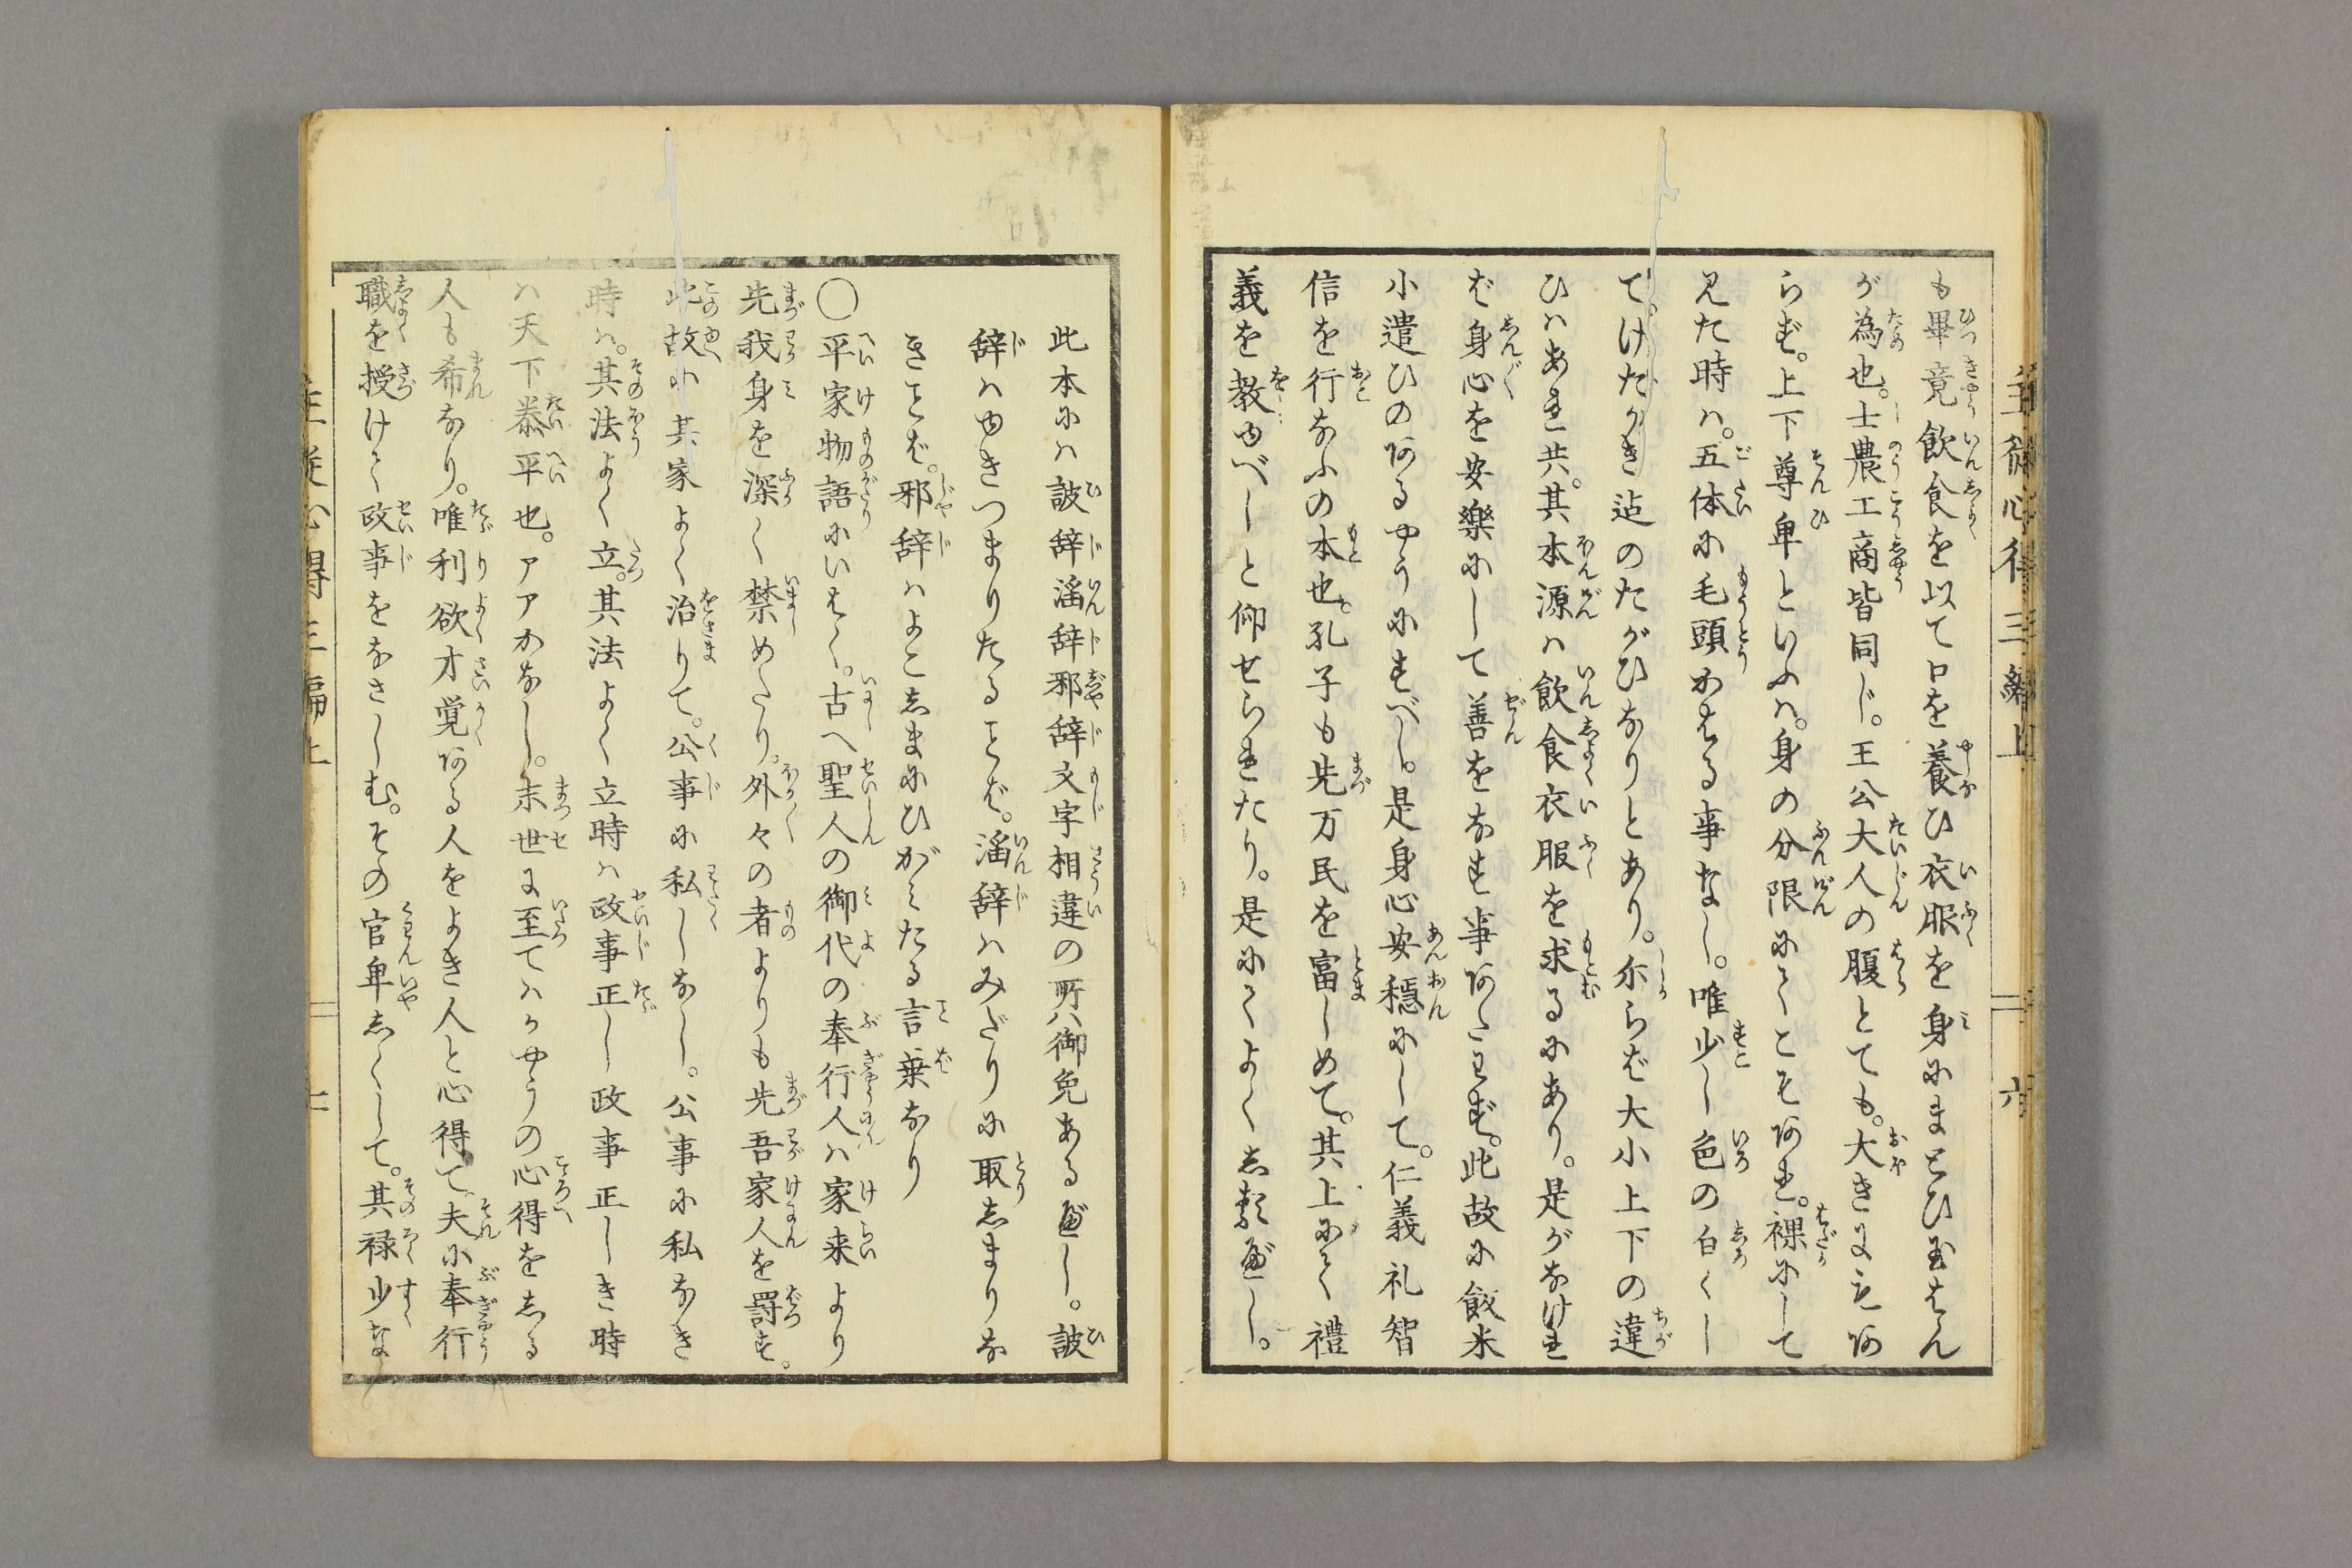 主従心得三編上
六
も畢竟飲食を以て口を養ひ衣服を身にまとひ
が為也。士農工商皆同じ。王公大人の腹とても。大きに
らず。上下尊卑といふハ。身の分限にてこそあれ。裸にして
見た時ハ。五体に毛頭かはる事なし。唯少し色の白くし
て。けだかき迠のたがひなりとあり。尓らば大小上下の違
ひハあれ共。其本源ハ飲食衣服を求るにあり。是がなけれ
ば身心を安樂にして善をなす事あたはず。此故に飯米
小遣ひのあるやうにすべし。是身心安穏にして。仁義礼智
信を行なふの本也。孔子も先万民を富しめて。其上にて禮
義を教ゆべしと仰せられたり。是にてよくしるべし。
此本にハ詖辞滛辞邪辞文字相違の所ハ御免あるべし。詖
辞ハゆきつまりたることば。滛辞ハみだりに取しまりな
きことば。邪辞ハよこしまにひがみたる言葉なり
○平家物語にいはく。古へ聖人の御代の奉行人ハ家来より
先我身を深く禁めたり。外々の者よりも先吾家人を罸す。
此故に其家よく治りて。公事に私しなし。公事に私なき
時ハ。其法よく立。其法よく立時ハ政事正し政事正しき時
ハ天下泰平也。アアかなし。末世に至てハかやうの心得をしる
人も希なり。唯利欲才覚ある人をよき人と心得て夫に奉行
職を授けて政事をなさしむ。その官卑しくして。其禄少な
主従心得三編上
七